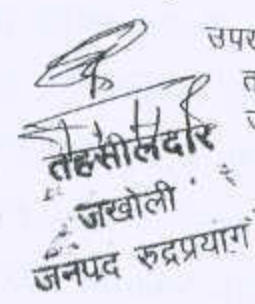 तहसीलदार
जखोली
जनपद रूद्रप्रयाग